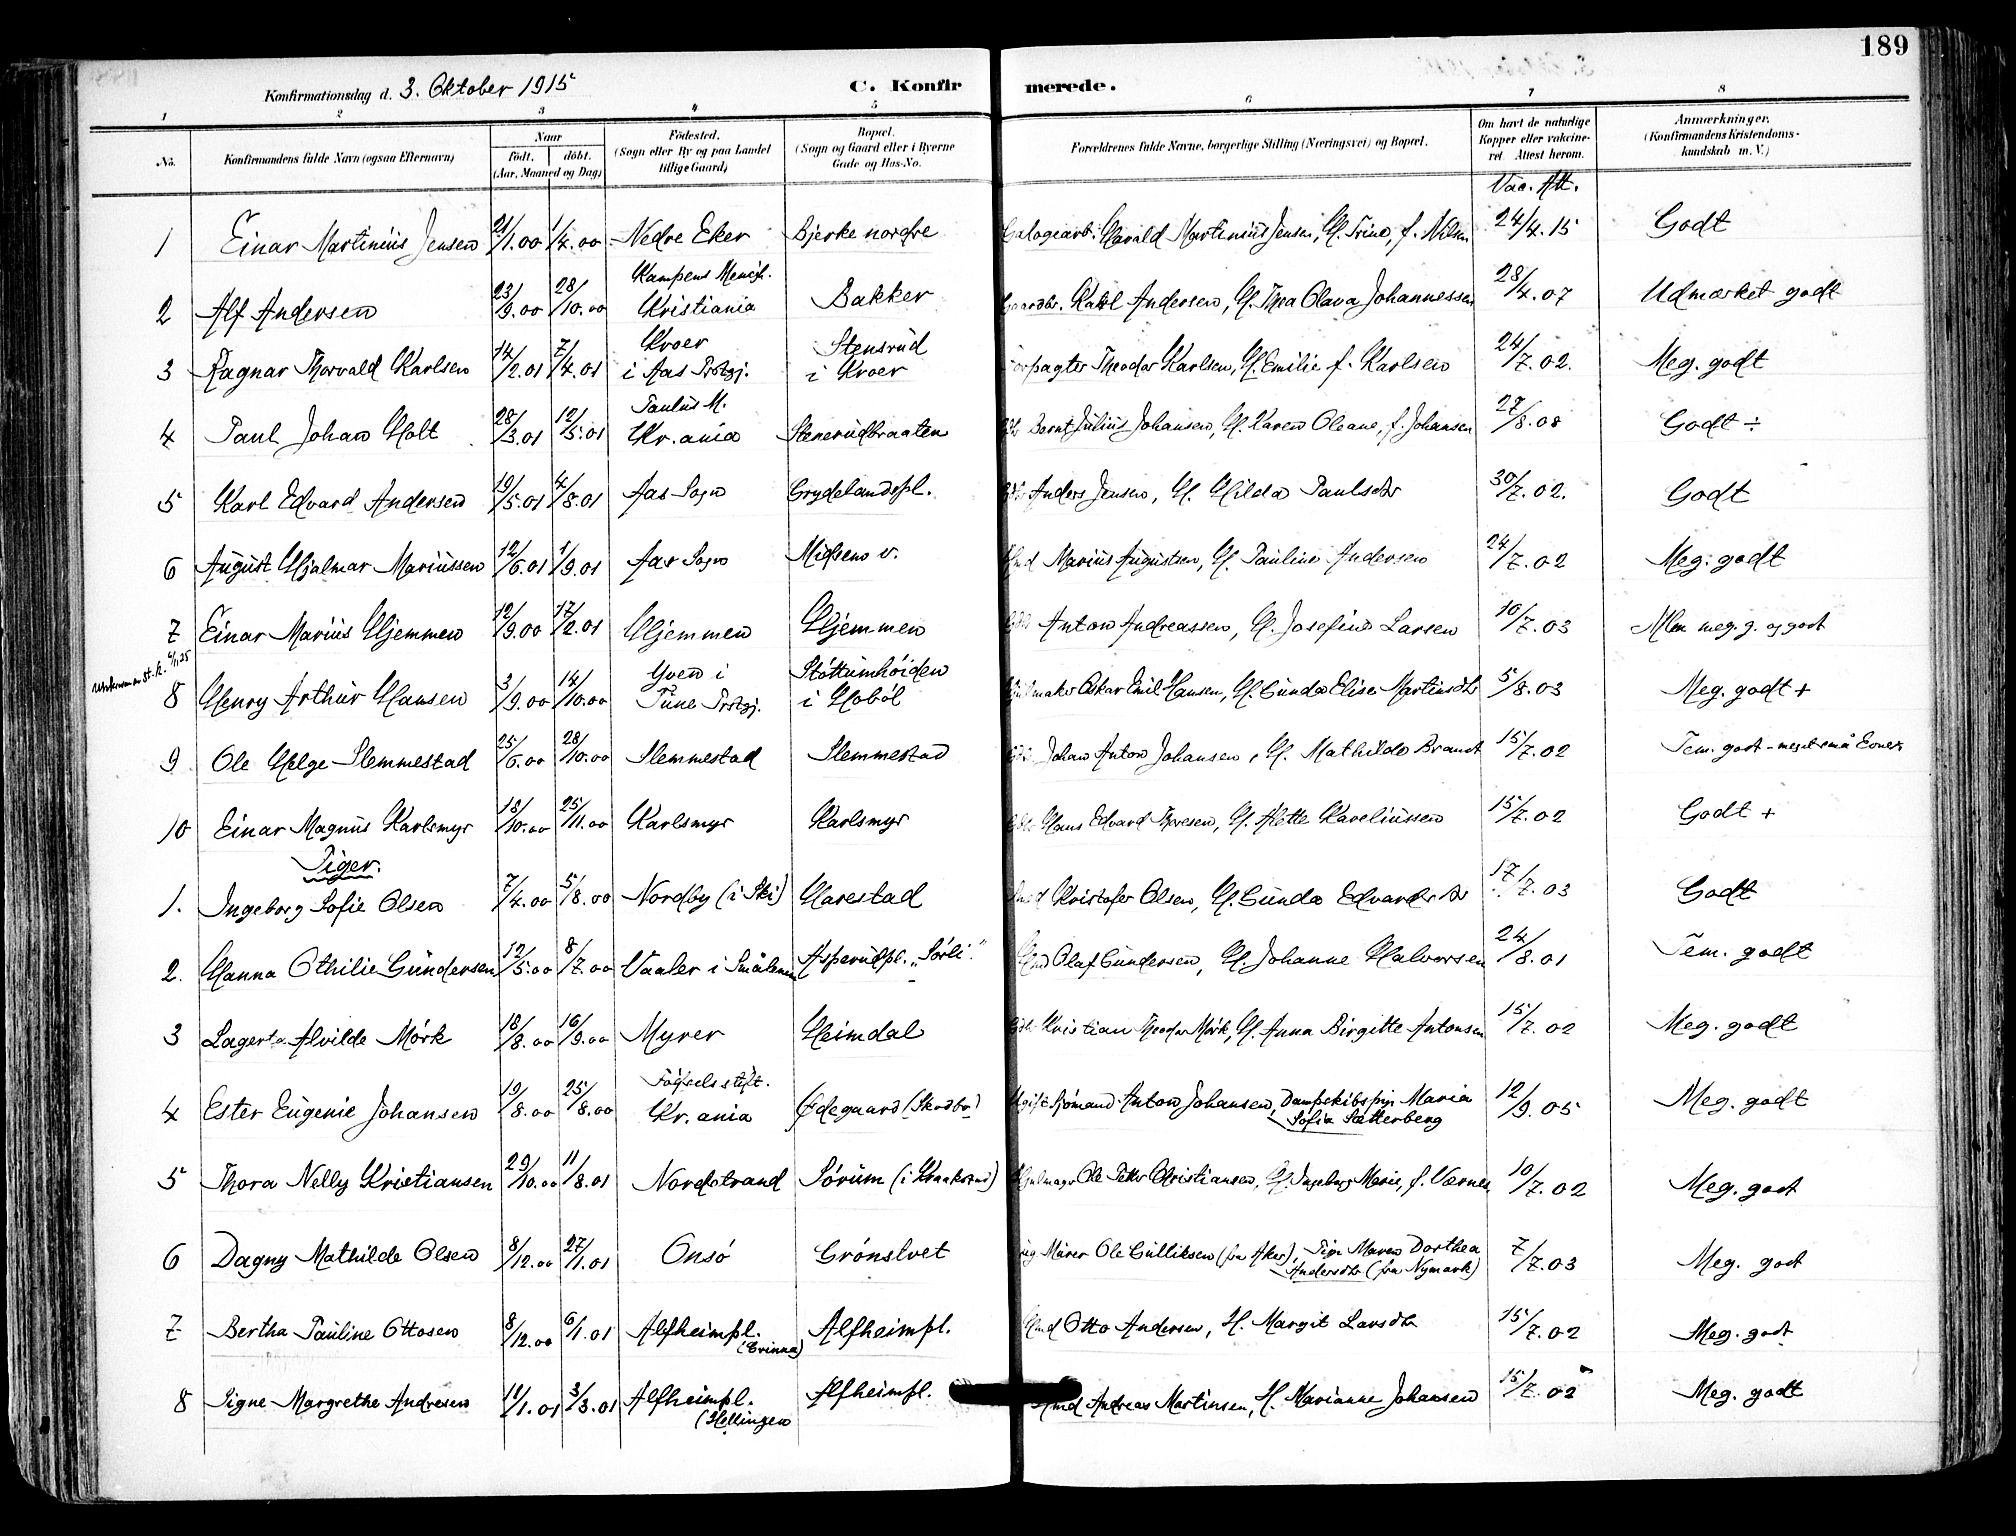 189
Konfirmationsdag d. 3. Oktober 1915 C. Konfirmerede.
1 2 3 4 5 6 7 8
No. Konfirmandens fulde Navn (ogsaa Efternavn) Naar Födt. döbt. (Aar, Maaned og Dag) Födested. (Sogn eller By og paa Landet tillige Gaard) Bopæl. (Sogn og Gaard eller i Byerne Gade og Hus-No. Forældrenes fulde Navne, borgerlige Stilling (Næringsvei) og Bopæl. Om havt de naturlige Kopper eller vaccineret. Attest herom. Anmærkninger. (Konfirmandens Kristendomskundskab m. V.)
Vac. Att.
1 Einar Martinius Jensen 21/1.00 1/4.00 Nedre Eker Bjerke nordre Galogearb. Harald Martinius Jensen, H. Trine, f. Nilsen 24/4.15 Godt
2 Alf Andersen 23/9.00 28/10.00 Kampens Menigh. Kristiania Bakker Gaardbr. Karl Andersen, H. Thea Olava Johannessen 28/4.07 Udmærket godt
3 Ragnar Thorvald Karlsen 14/2.01 7/4.01 Kroer i Aas Prstgj. Stensrud i Kroer Forpagter Theodor Karlsen, H. Emilie f. Karlsen 24/7.02. Meg. godt
4 Paul Johan Holt 28/3.01 12/5.01 Paulus M. Kr.ania Stenerudbraaten Bernt Julius Johansen, H. Karen Oleane, f. Johansen 27/8.08 Godt ÷
5 Karl Edvard Andersen 19/5.01 4/8.01 Aas Sogn Grydelandspl. Anders Jensen, H. Hilda Paulsdtr 30/7.02. Godt
6 August Hjalmar Mariussen 12/6.01 1/9.01 Aas Sogn Midsem v. Hmd Marius Augustsen, H. Pauline Andersen 24/7.02 Meg. godt
7 Einar Marius Hjemmen 12/9.00 17/2.01 Hjemmen Hjemmen Anton Andreassen, H. Josefine Larsen 10/7.03 Mlm meg. g. og godt
8 Henry Arthur Hansen 3/9.00 14/10.00 Yven i Tune Prstgj. Støttumhöiden i Hoböl Hjulmaker Oskar Emil Hansen, H. Gunda Elise Martinsdtr 5/8.03 Meg. godt +
9 Ole Helge Slemmestad 25/6.00 28/10.00 Slemmestad Slemmestad Johan Anton Johansen, H. Mathilde Brandt 15/7.02 Tem. godt - meget små Evner
10 Einar Magnus Karlsmyr 18/10.00 25/11.00 Karlsmyr Karlsmyr Hans Edvard Thoresen, H. Alette Kareliussen 15/7.02 Godt +
Piger.
1. Ingeborg Sofie Olsen 7/4.00 5/8.00 Nordby (i Ski) Harestad Hmd Kristofer Olsen, H. Gunda Edvardsdtr 17/7.03 Godt
2. Hanna Othilie Gundersen 12/5.00 8/7.00 Vaaler i Smålenene Asperudpl. „Sörli“ Hmd Olaf Gundersen, H. Johanne Halvorsen 24/8.01 Tem. godt
3 Lagerta Alvilde Mörk 18/8.00 16/9.00 Myrer Heimdal Kristian Theodor Mörk, H. Anna Birgitte Antonsen 15/7.02 Meg. godt
4 Ester Eugenie Johansen 19/8.00 25/8.00 Födselsstift. Kr.ania Ødegaard (Skodbo) Ugift Sjömand Anton Johansen, Dampskibspige Maria Sofia Sætterberg 12/9.05 Meg. godt
5 Thora Nelly Kristiansen 29/10.00 11/8.01 Nordstrand Sörum (i Kraakstad) Hjulmager Ole Petter Christiansen, H. Ingeborg Marie, f. Værnes 10/7.02 Meg. godt
6 Dagny Mathilde Olsen 8/12.00 27/1.01 Onsö Grönslvet Murer Ole Gulliksen (fra Aker), Pige Maren Dorthea Andersdtr (fra Nymark) 7/7.03 Meg. godt
7 Bertha Pauline Ottosen 8/12.00 6/1.01 Alfheimpl. (Grinna) Alfheimpl. Hmd Otto Andersen, H. Margit Larsdtr 15/7.02 Meg. godt
8 Signe Margrethe Andresen 19/1.01 3/3.01 Alfheimpl. (Hellingen Alfheimpl. Hmd Andreas Martinsen, H. Marianne Johansen 15/7.02 Meg. godt